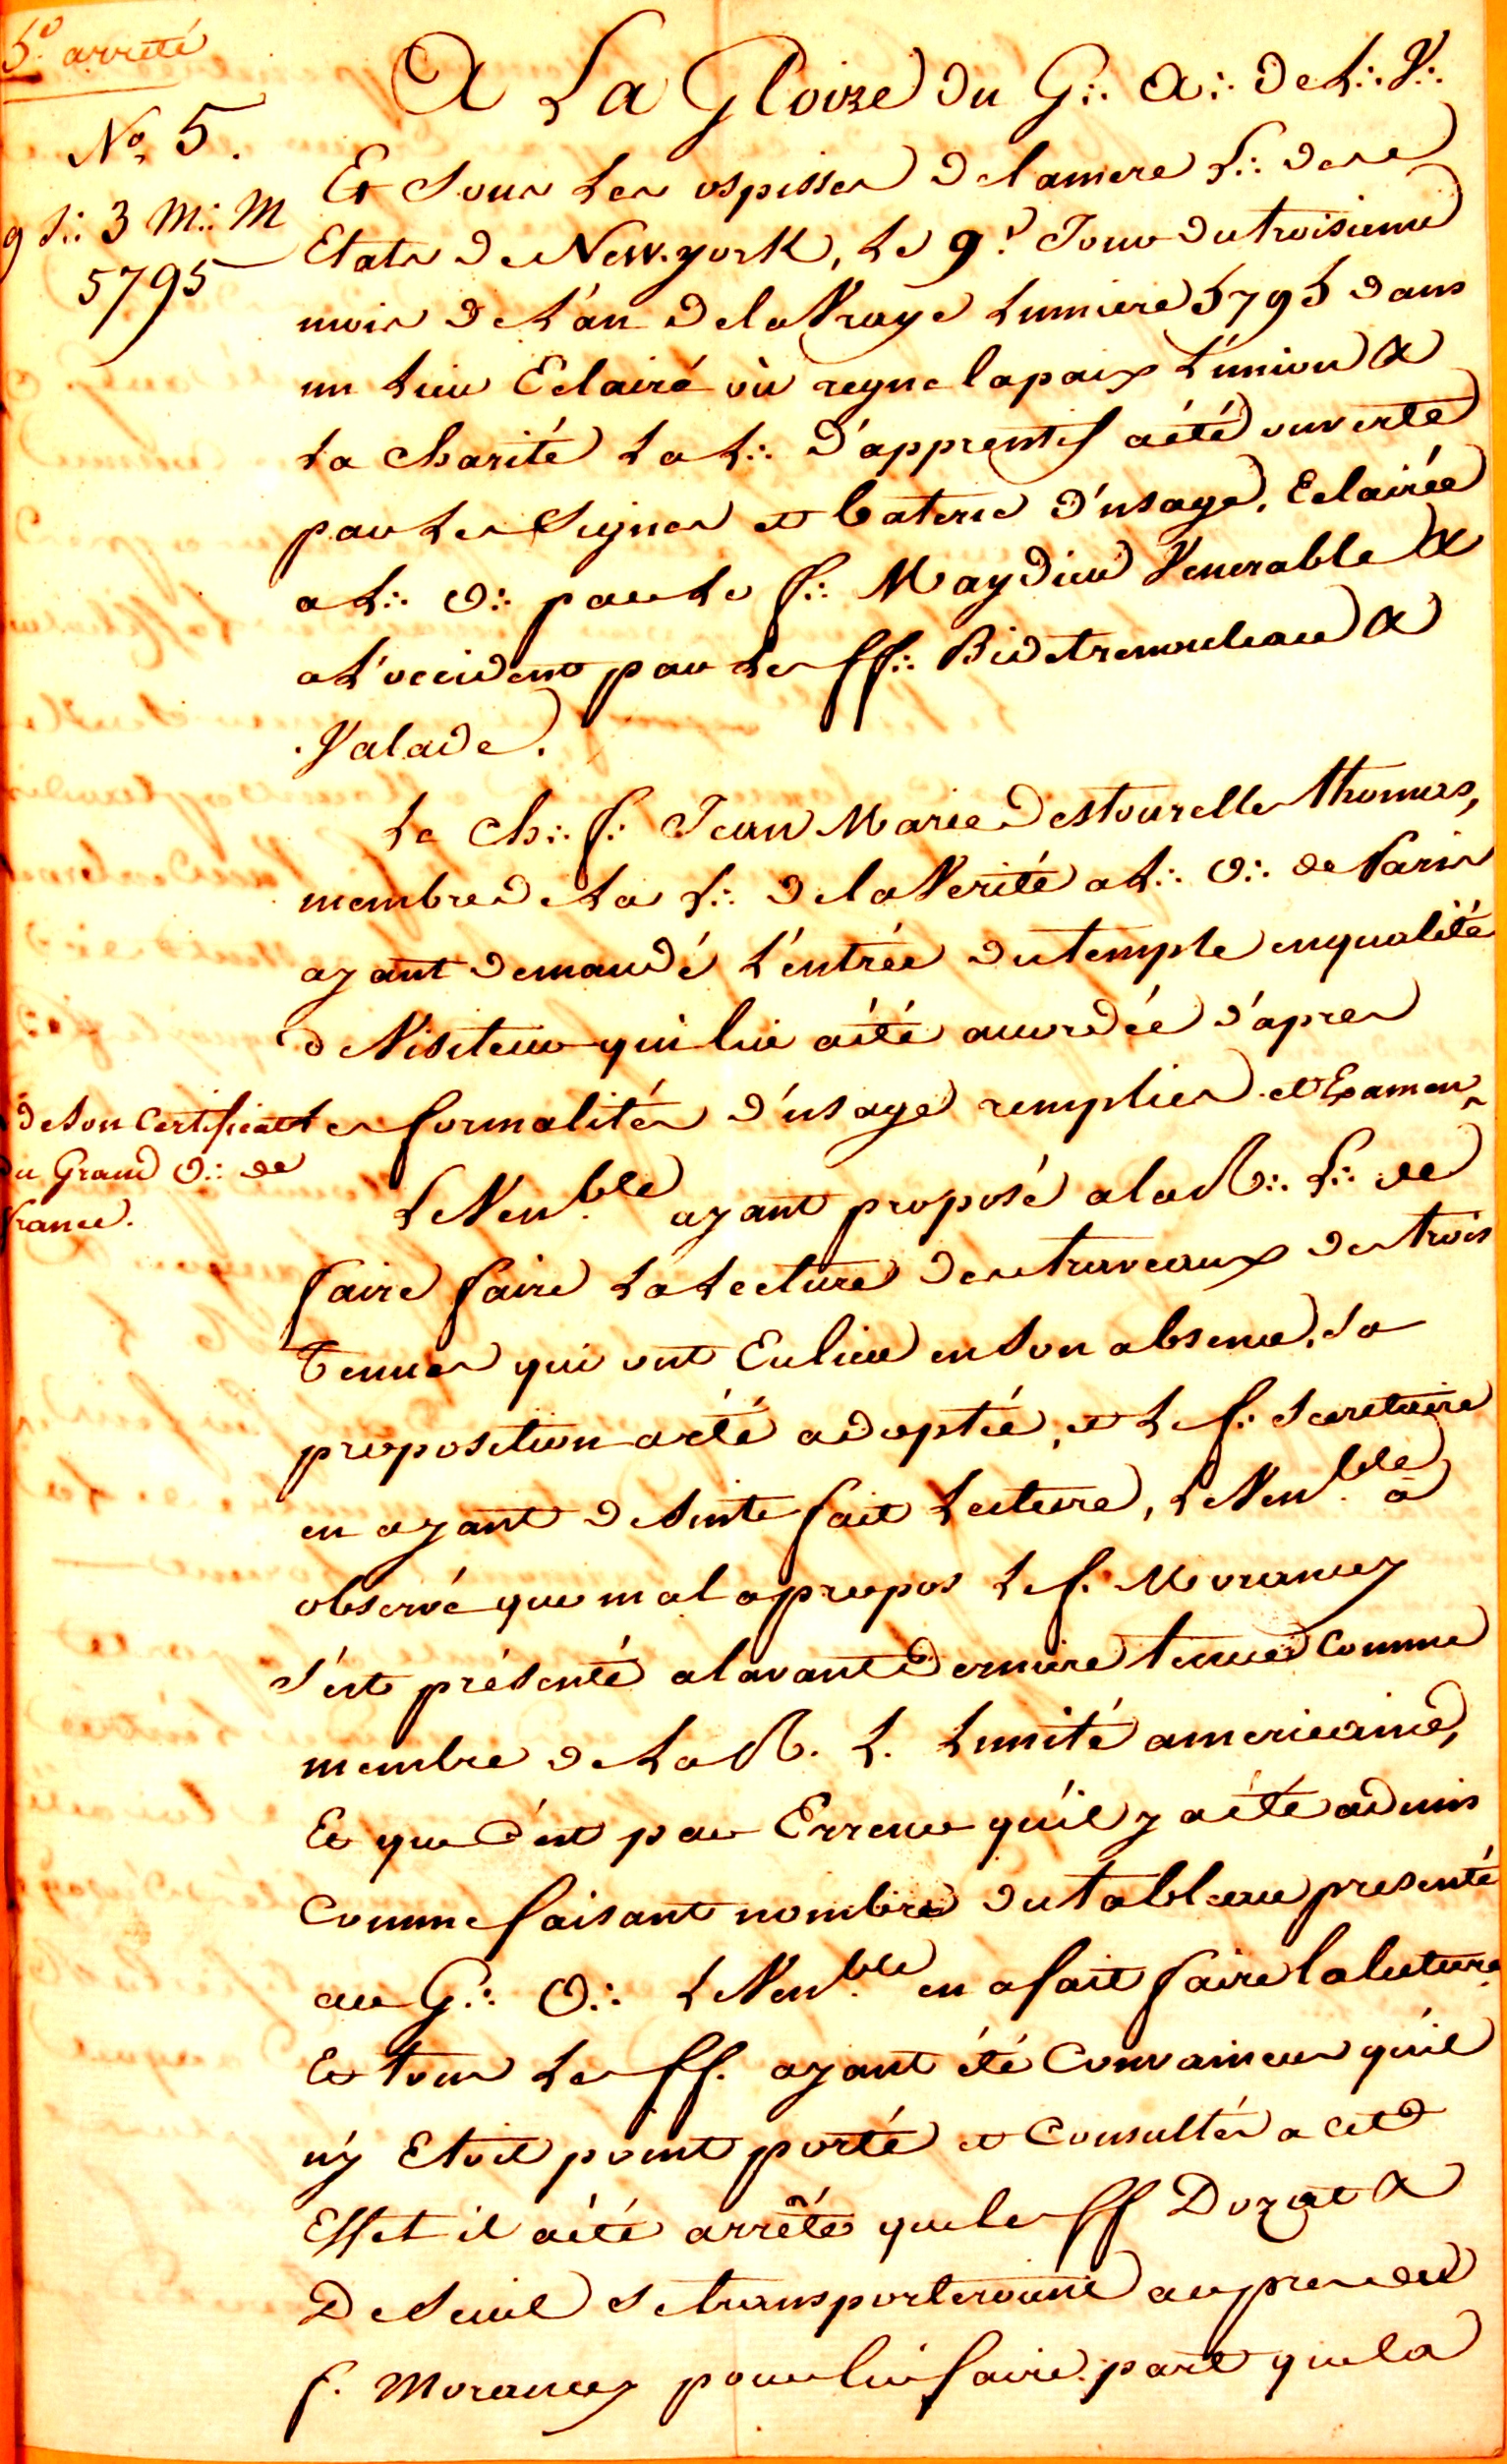 5º arreté
Nº 5.
9 J∴ 3 M∴ M
5795
A La Gloire du G∴ A∴ de L∴ V∴
Et Sous Les ospisses de lamere L∴ des
Etats de New-york, Le 9e Jour du troisieme
mois de L'an de la Vraye Lumiere 5795 dans
un Lieu Eclairé où regne la paix L'union &
La Charité La L∴ D'apprentif a été ouverte
par Les Signes et baterie d'usage, Eclairée
a L∴ O∴ par Le f∴ Maydieu Venerable &
a L'occident par Les ff∴ Bidetremouleau &
Valade.
Le Ch∴ f∴ Jean Marie Destourelles Thomas,
membre de La L∴ de la Verité a L∴ O∴ de Paris
ayant demandé L'entrée du temple en qualité
de Visiteur qui lui a été accordée d'apres
Les formalités d'usage remplies et Examen
de Son Certificat
du Grand O∴ de
france.
Le Ven.ble ayant proposé a la R∴ L∴ de
faire faire La Lecture des traveaux des trois
Tenues qui ont Eu lieu en Son absence, Sa
proposition a été adoptée, et Le f∴ Secretaire
en ayant de Suite fait Lecture, Le Ven.ble a
observé que mal apropos Le f. Morancy
S'est présenté a lavant derniere tenue comme
membre de La R. L. Lunité americaine,
Et que C'est par Erreur qu'il y a été admis
Comme faisant nombre du tableau presenté
au G∴ O∴ Le Ven.ble en a fait faire la lecture
Et tous Les ff. ayant été Convaincus qu'il
n'y Etoit point porté et Consultés a cet
Effet il a été arrêté que les ff Dozat &
De Seuil Se transporteront aupres du
f. Morancy pour lui faire part que la